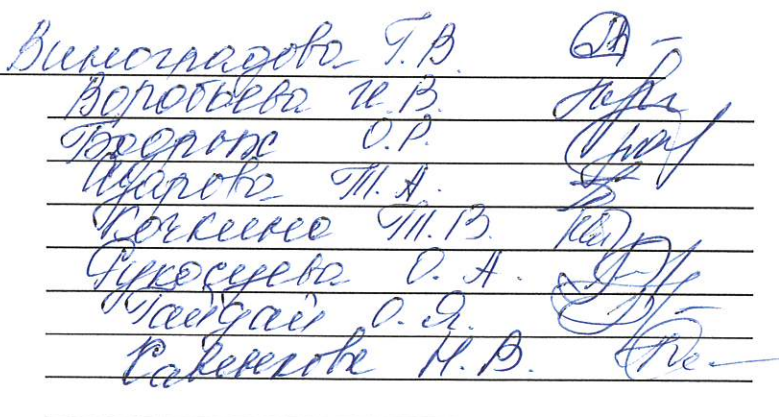 Виноградова Г.В.
Воробьева И.В.
Бодрых О.Р.
Идарова Т.А.
Кочкина Т.В.
Рукосуева О.А.
Гайдай О.Я.
Савенкова Н.В.